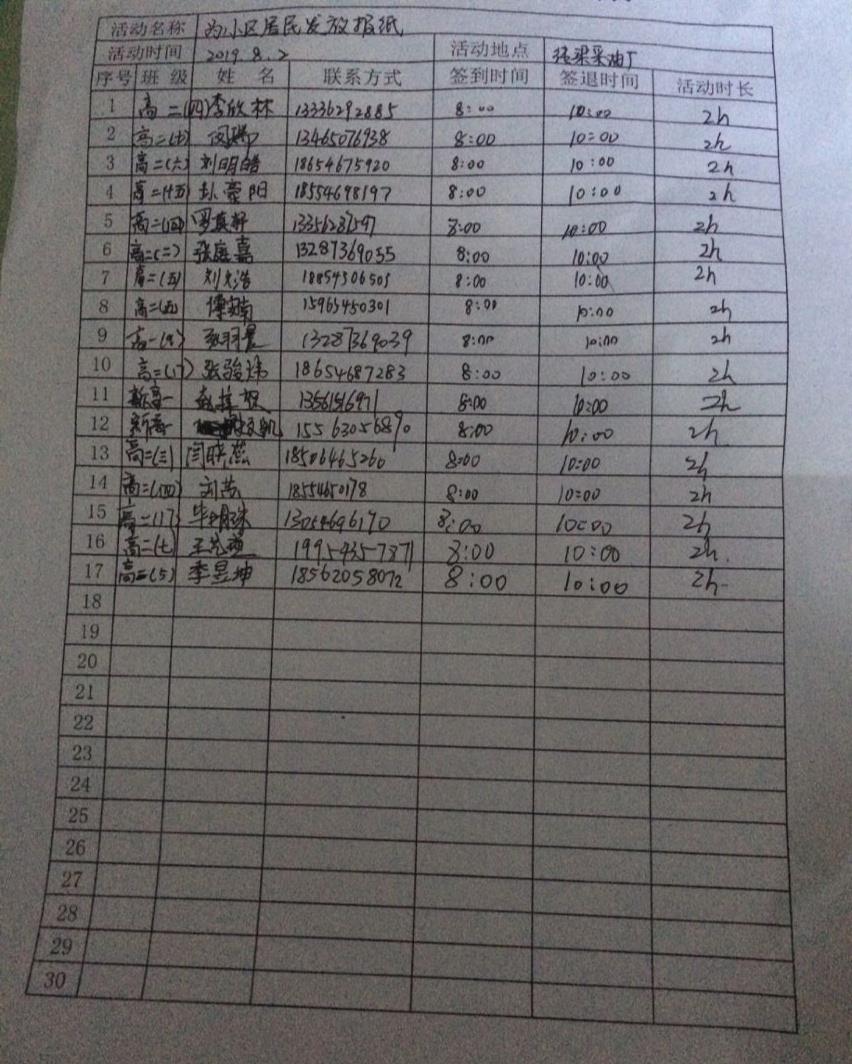 活动名称 为小区居民发放报纸
活动时间 2019.8.2 活动地点 采油厂
序号 班级 姓名 联系方式 签到时间 签退时间 活动时长
1 高二(四) 李欣林 13336292885 8:00 10:00 2h
2 高二(七) 13465076938 8:00 10:00 2h
3 高二(六) 刘明皓 18654675920 8:00 10:00 2h
4 高二(十五) 彭豪阳 18554698197 8:00 10:00 2h
5 高二(四) 8:00 10:00 2h
6 高二(二) 张庭嘉 13287369055 8:00 10:00 2h
7 高二(五) 18854506505 8:00 10:00 2h
8 高二(五) 15965450301 8:00 10:00 2h
9 高一 13287369039 8:00 10:00 2h
10 高二(17) 张骏炜 18654687283 8:00 10:00 2h
11 新高一 8:00 10:00 2h
12 新高一 15563056890 8:00 10:00 2h
13 高二(三) 闫联蕊 18506465260 8:00 10:00 2h
14 高二(四) 8:00 10:00 2h
15 高二(17) 毕明珠 13054696170 8:00 10:00 2h
16 高二(七) 19954357871 8:00 10:00 2h
17 高二(5) 李昱坤 18562058072 8:00 10:00 2h
18
19
20
21
22
23
24
25
26
27
28
29
30